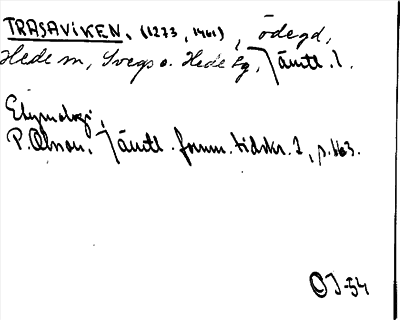 TRASAVIKEN. (1273, 1461), ödegd,
Hede sn, Svegs o. Hede tg, Jämtl. l.
Etymologi,
P. Olsson, Jämtl. fornm. tidskr. 1, p. 163.
OJ-54